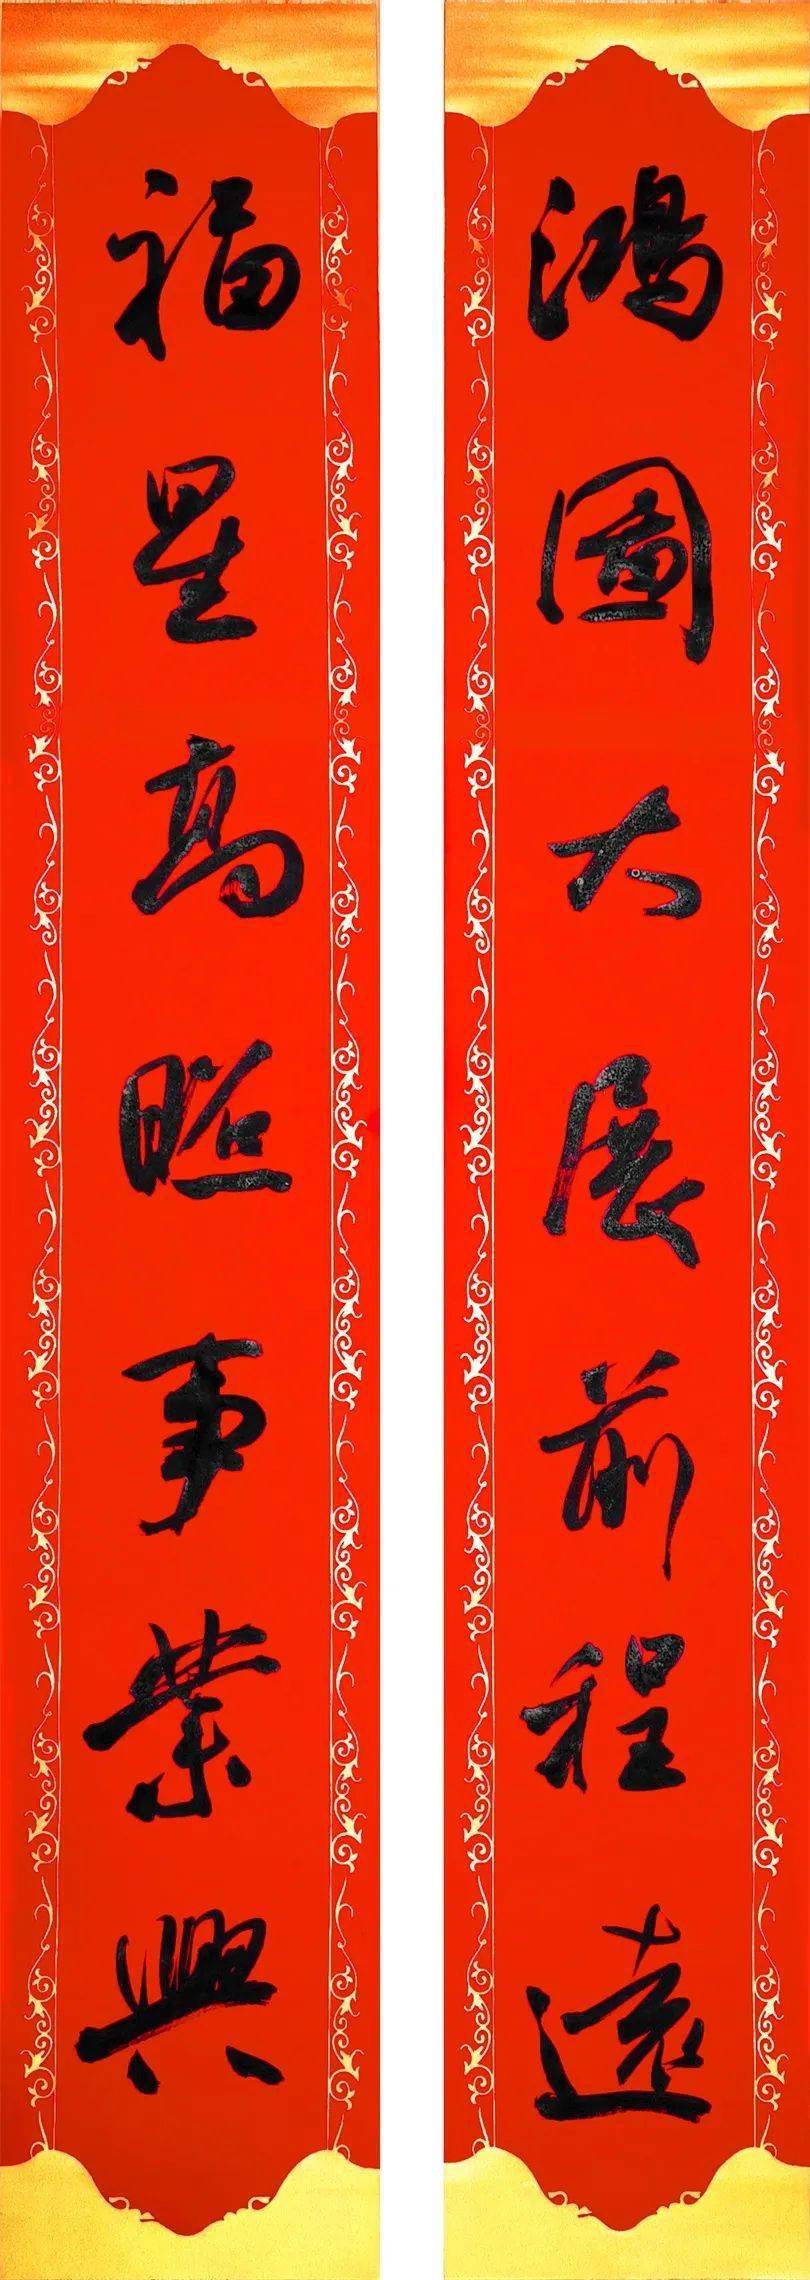 鴻圖大展前程遠
福星高照事業興